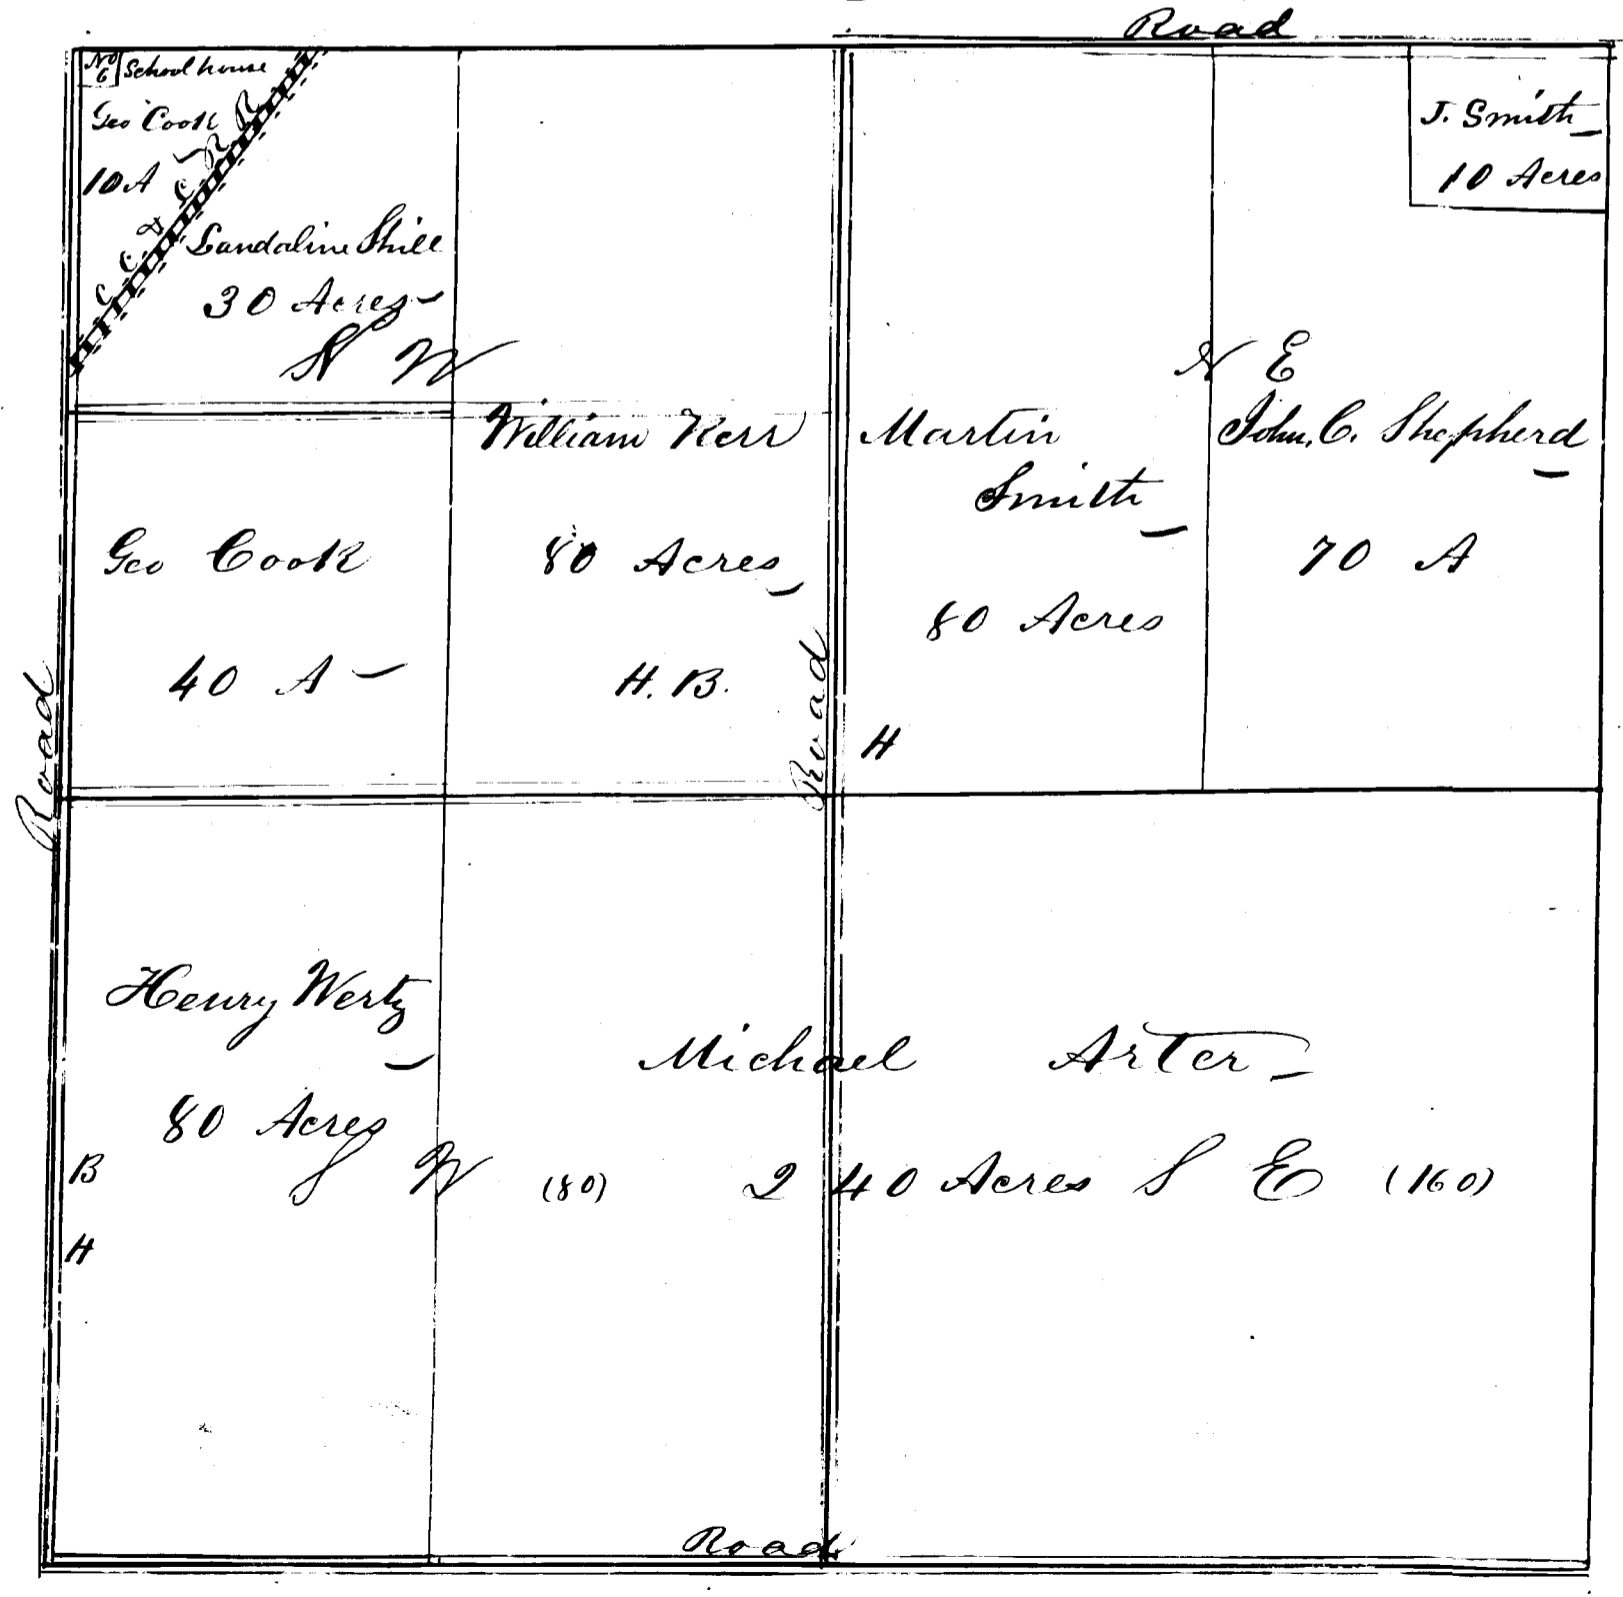 Road
No 6 School house
Geo Cook
10 A
C C & L R R
Landaline Shill
30 Acres
N W
J. Smith
10 Acres
N E
William Kerr
80 Acres
H. B.
Martin
Smith
80 Acres
H
John. C. Shepherd
70 A
Geo Cook
40 A
Road
Road
Henry Wertz
80 Acres
B
H
S W (80)
Michael Arter
240 Acres S E (160)
Road